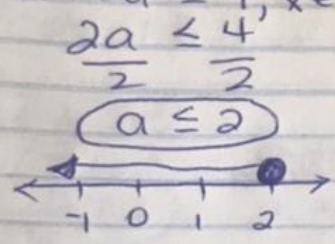 2a ≤ 4
2 2
a ≤ 2
-1 0 1 2